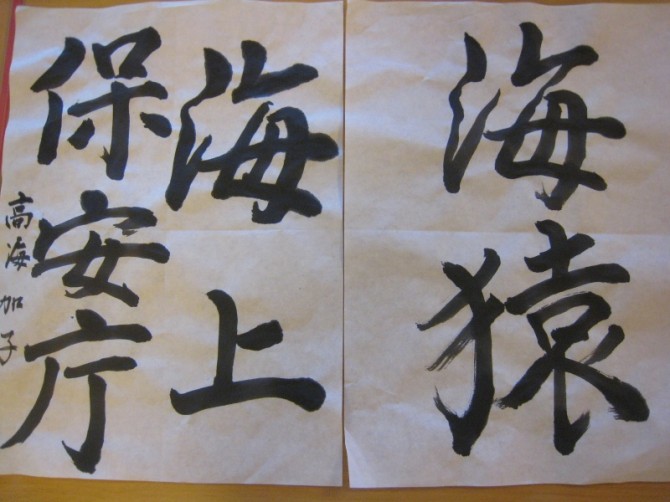 海猿
海上
保安庁
高海加子